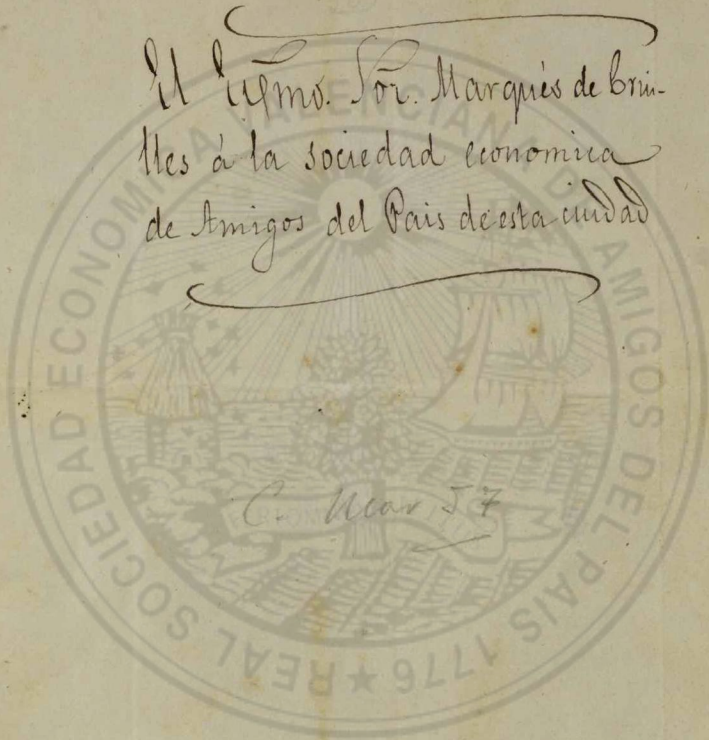 El Excmo. Sor. Marqués de Crui-
lles á la sociedad economica
de Amigos del Pais de esta ciudad
C.
57
REAL SOCIEDAD ECONOMICA VALENCIANA DE AMIGOS DEL PAIS 1776